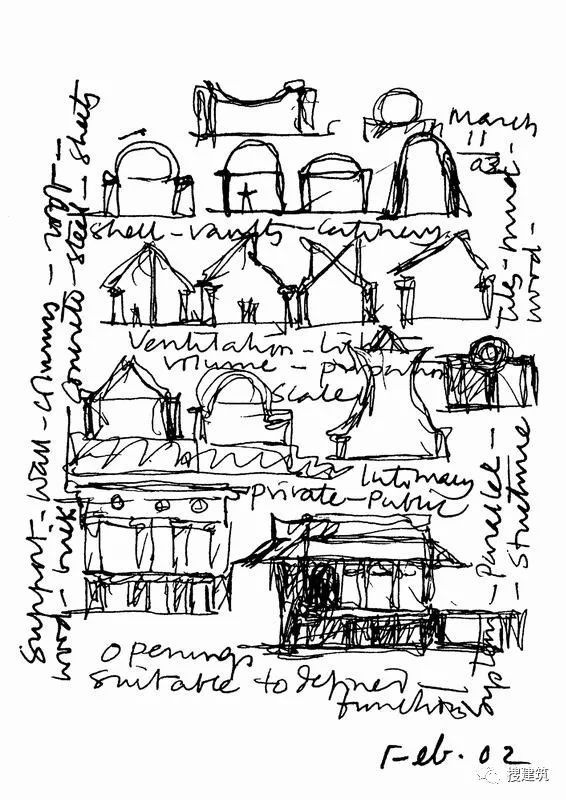 March
11
03
shell-vaults-catenary
ventilation-light
volume-proportion
scale
Intimacy
private-Public
openings
suitable to defined
function
support-wall-columns-door-
wood-brick-concrete-steel-sheets
Tile-
wood-
system-Parallel-
-structure
Feb. 02
搜建筑